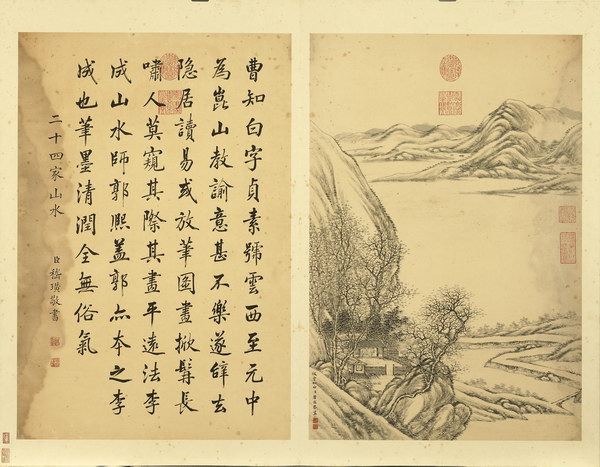 曹知白字貞素號雲西至元中
為崑山教諭意甚不樂遂辭去
隱居讀易或放筆圖畫掀髯長
嘯人莫窺其際其畫平遠法李
成山水師郭熙蓋郭亦本之李
成也筆墨清潤全無俗氣
二十四家山水
臣嵇璜敬書